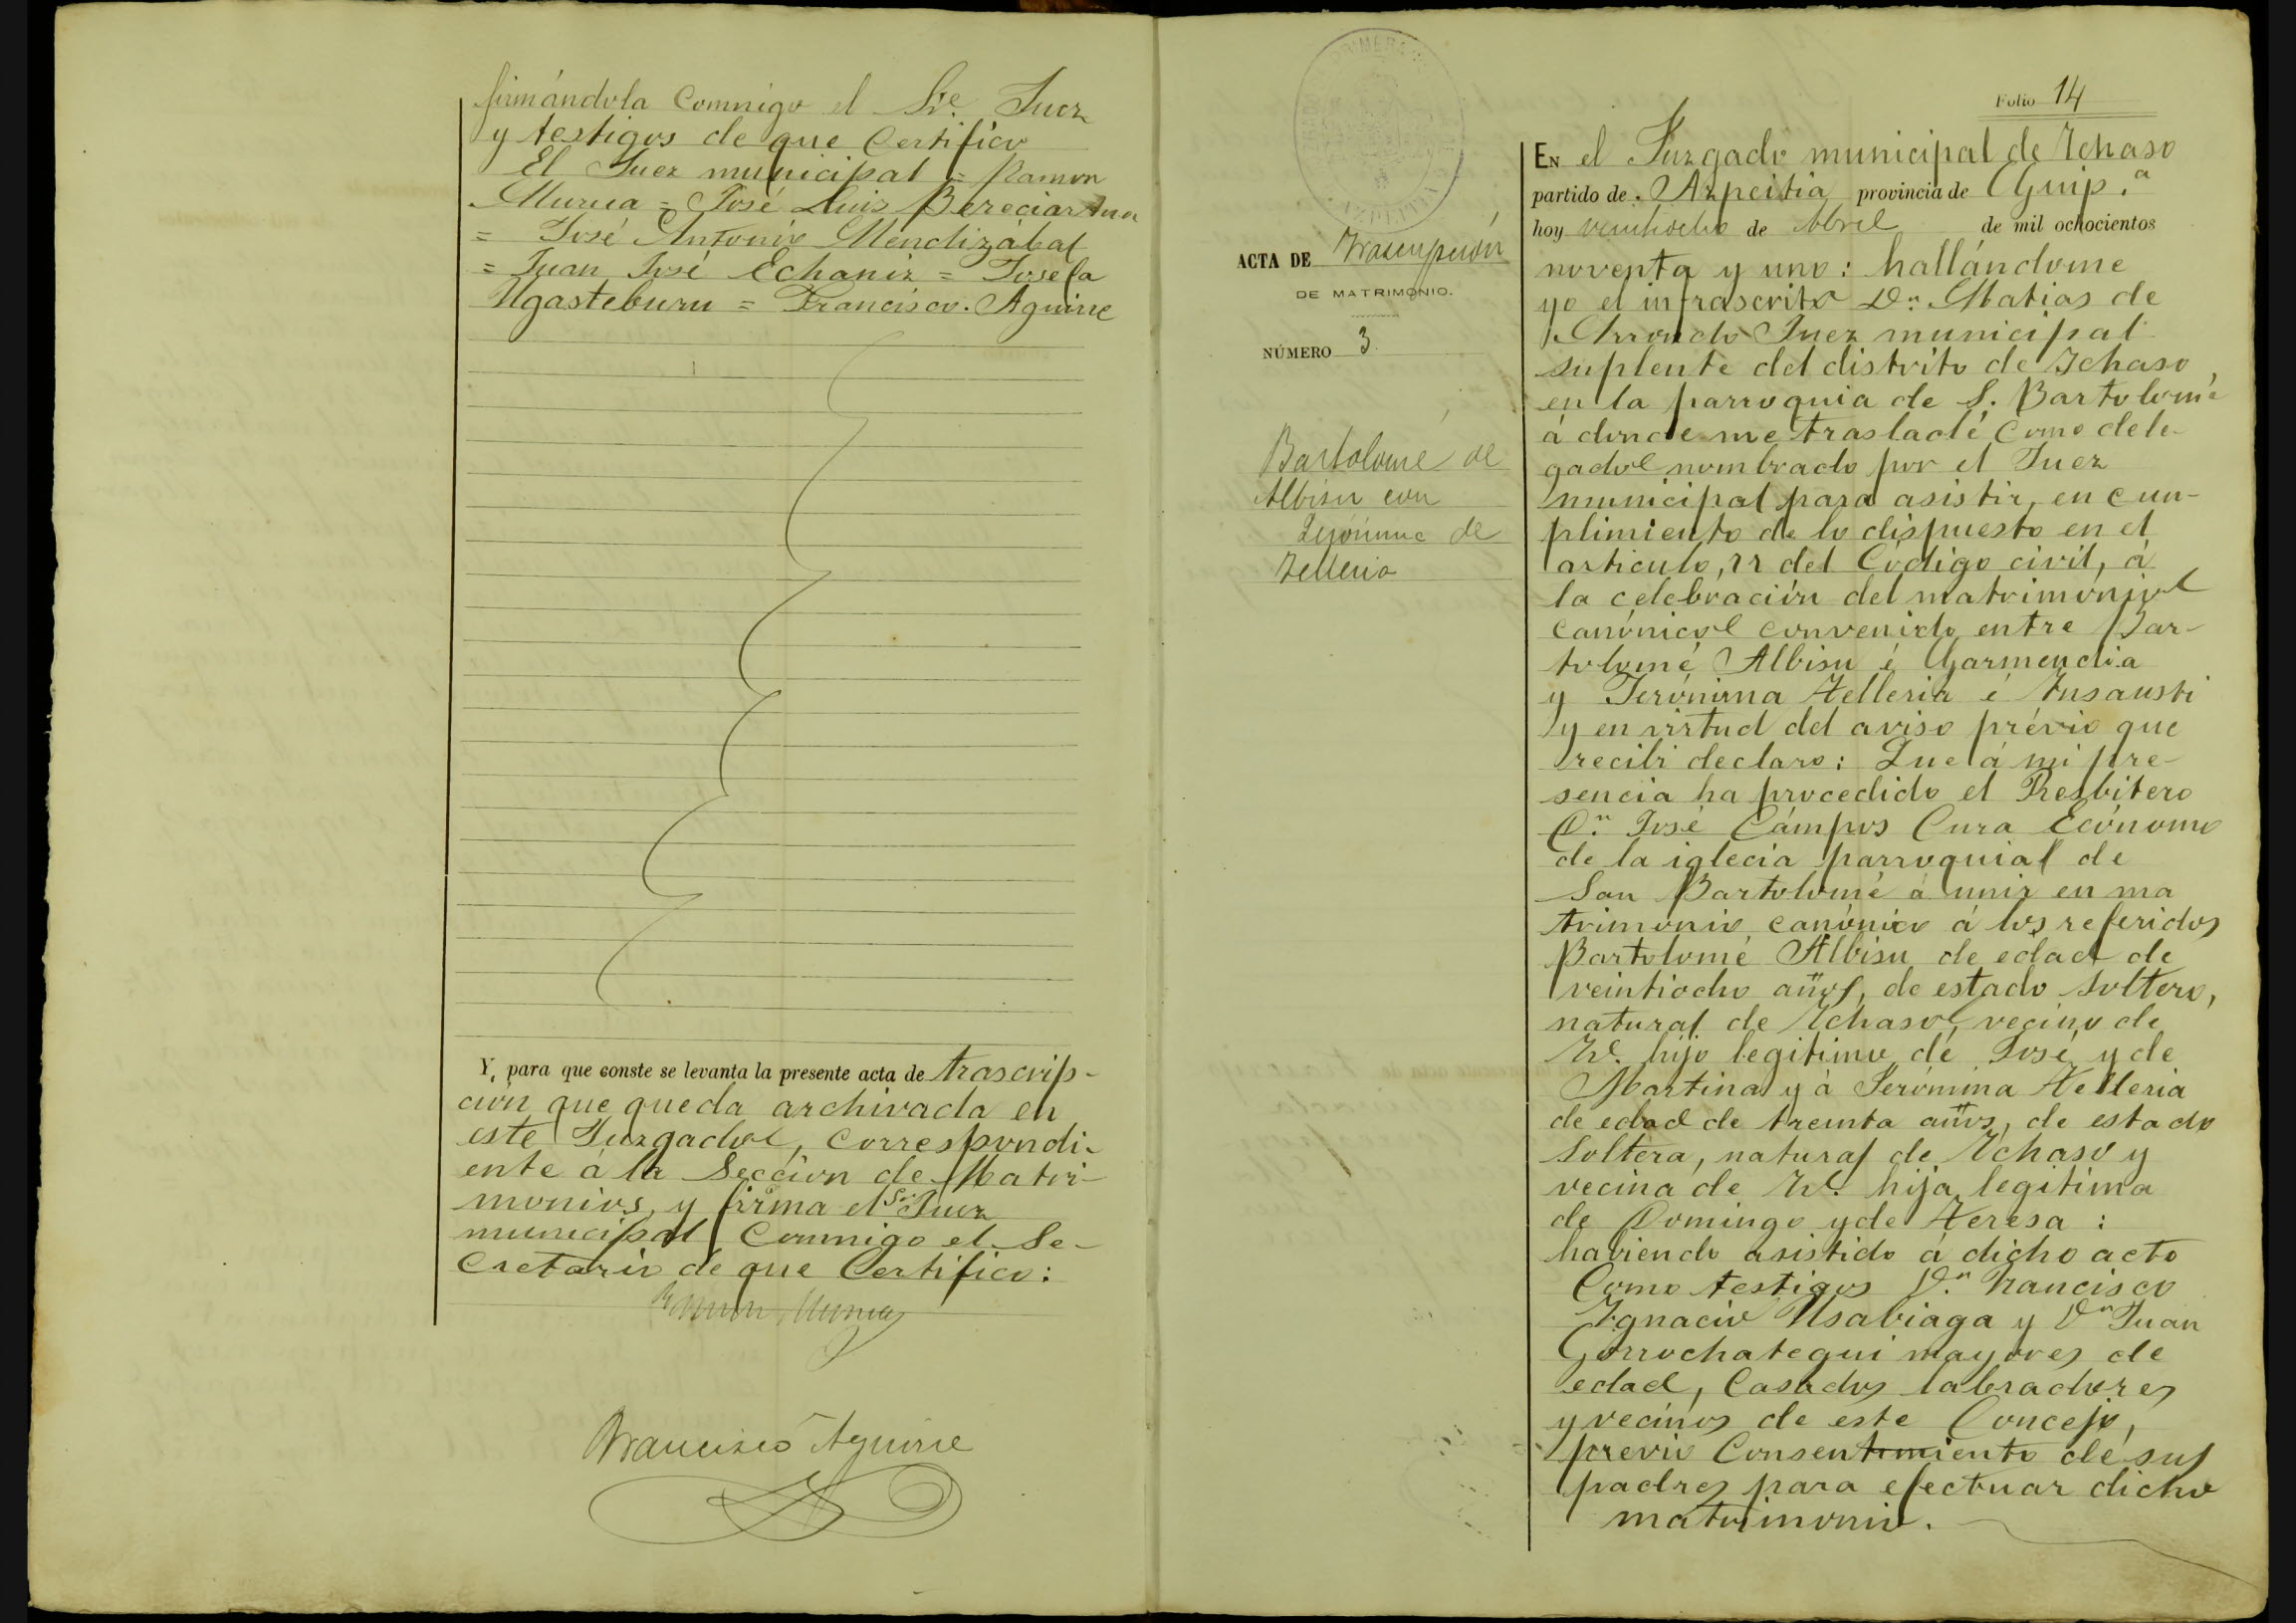 firmándola Conmigo el Sr. Juez
y testigos de que Certifico
El Juez municipal = Ramon
Murua = José Luis Bereciartua
= José Antonio Mendizábal
= Juan José Echaniz = Josefa
Ugasteburu = Francisco Aguirre
Y, para que conste se levanta la presente acta de trascrip-
ción que queda archivada en
este Juzgado, correspondi-
ente á la Sección de Matri-
monios, y firma el Sr. Juez
municipal Conmigo el Se-
cretario de que Certifico:
Ramon Murua
Francisco Aguirre
PRIMERA
AZPEITIA
ACTA DE Trascripción
DE MATRIMONIO.
NÚMERO 3
Bartolomé de
Albisu con
Jerónima de
Telleria
Folio 14
EN el Juzgado municipal de Ichaso
partido de Azpeitia provincia de Guip.ª
hoy veintiocho de Abril de mil ochocientos
noventa y uno: hallándome
yo el infrascrito Dn. Matias de
Arrondo Juez municipal
suplente del distrito de Ichaso,
en la parroquia de S. Bartolomé
á donde me trasladé como dele-
gado nombrado por el Juez
municipal para asistir, en cun-
plimiento de lo dispuesto en el
articulo, 77 del Código civil, á
la celebración del matrimónio
canónico convenido entre Bar-
tolomé Albisu é Garmendia
y Jerónima Telleria é Insausti
y en virtud del aviso prévio que
recibi declaro: Que á mi pre-
sencia ha procedido el Presbitero
Dn. José Cámpos Cura Ecónomo
de la iglecia parroquial de
San Bartolomé á unir en ma
trimonio canónico á los referidos
Bartolomé Albisu de edad de
veintiocho años, de estado soltero,
natural de Ichaso, vecino de
Id. hijo legitimo de José y de
Martina y á Jerónima Telleria
de edad de treinta años, de estado
Soltera, natural de Ichaso y
vecina de Id. hija legitima
de Domingo y de Teresa:
haviendo asistido á dicho acto
Como testigos Dn. Francisco
Ignacio Usabiaga y Dn Juan
Gorrochategui mayores de
edad, Casados labradores
y vecinos de este Concejo,
previo Consentimiento de sus
padres para efectuar dicho
matrimonio.